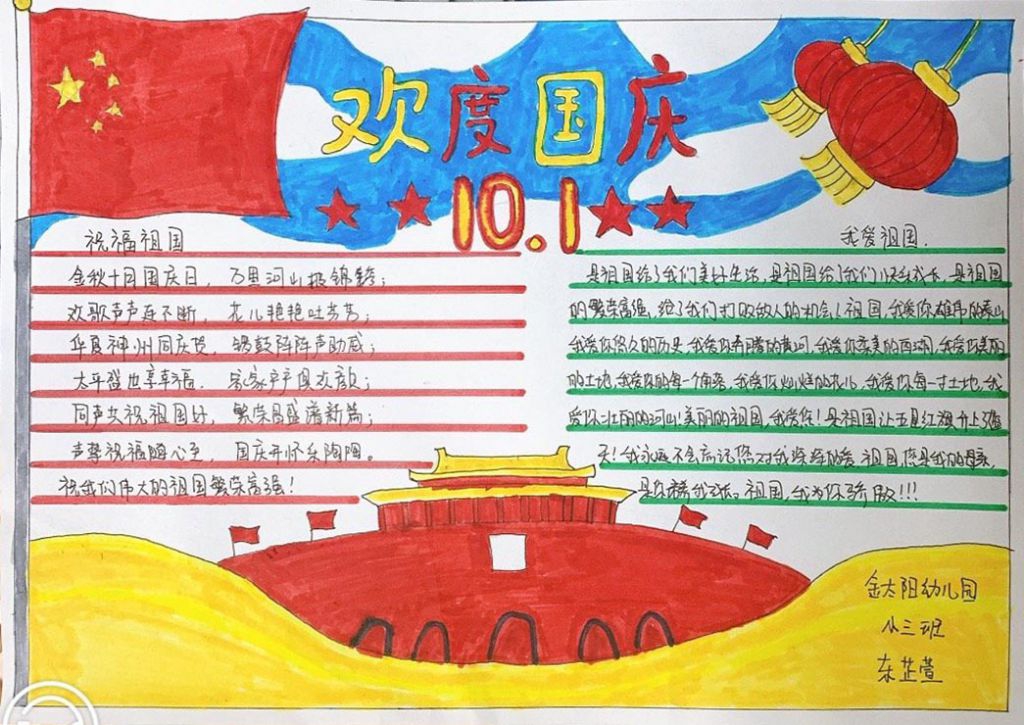 欢度国庆
10.1
祝福祖国
金秋十月国庆日，万里河山披锦绣；
欢歌声声再不断，花儿艳艳吐芳芳；
华夏神州同庆贺，锣鼓阵阵声助威；
太平盛世享幸福，家家户户俱欢颜；
同声共祝祖国好，繁荣昌盛谱新篇；
声声祝福随心至，国庆开怀乐陶陶。
祝我们伟大的祖国繁荣富强！
我爱祖国.
是祖国给了我们美好生活，是祖国给了我们快乐成长，是祖国
的繁荣富强，给了我们打败敌人的机会！祖国，我爱你雄伟的泰山，
我爱你悠久的历史，我爱你奔腾的黄河，我爱你柔美的西湖，我爱你美丽
的土地，我爱你的每一个角落，我爱你灿烂的花儿，我爱你每一寸土地，我
爱你壮丽的河山！美丽的祖国，我爱您！是祖国让五星红旗升上了蓝
天！我永远不会忘记您对我深深的爱，祖国您是我的母亲，
是你 我 。祖国，我为你骄傲！！！
金太阳幼儿园
小三班
东芷萱